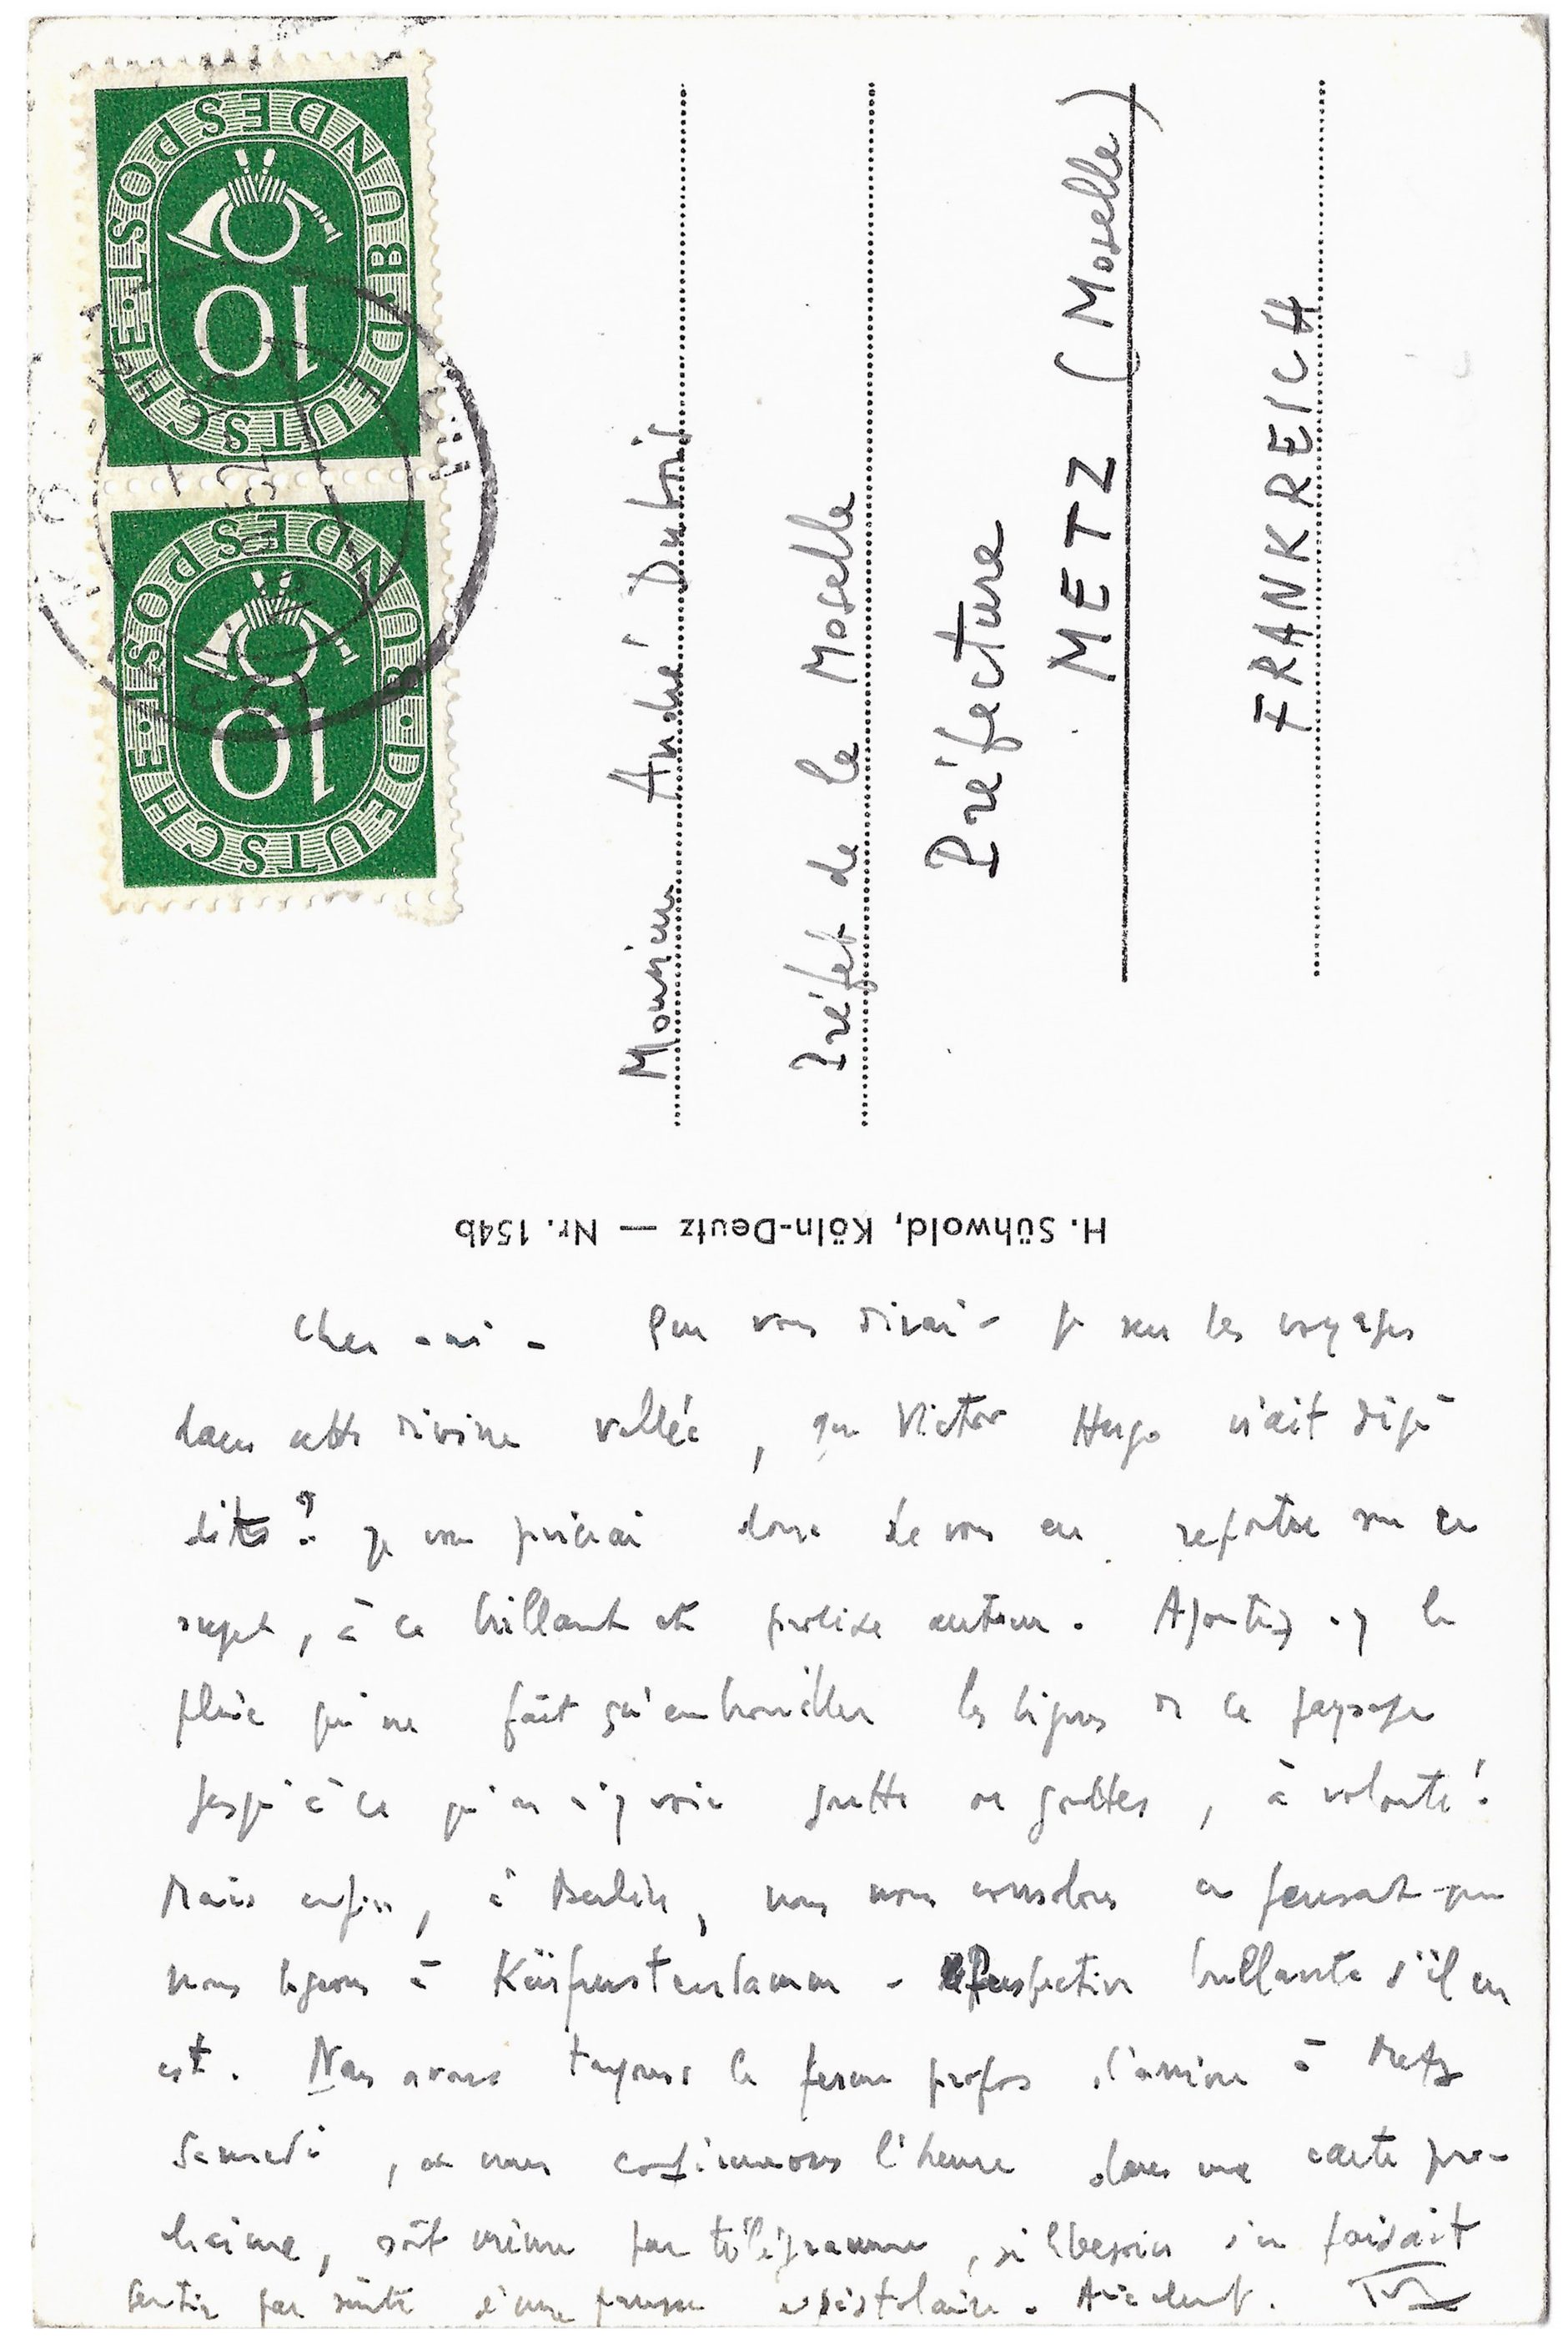 DEUTSCHE · BUNDESPOST ·
10
DEUTSCHE · BUNDESPOST ·
10
Monsieur André Dubois
Préfet de la Moselle
Préfecture
METZ (Moselle)
FRANKREICH
H. Sühwold, Köln-Deutz — Nr. 154b
Cher ami - Que vous dirai-je sur les voyages
dans cette divine vallée, que Victor Hugo n'ait déjà
dits? Je vous prierai donc de vous en reporter sur ce
sujet, à ce brillant et prolixe auteur. Ajoutez-y la
pluie qui ne fait qu'embrouiller les lignes de ce paysage
jusqu'à ce qu'on n'y voie goutte ou gouttes, à volonté!
Mais enfin, à Berlin, nous nous consolons en pensant que
nous logeons à Kürfurstendamm - Perspective brillante s'il en
est. Nous avons toujours le ferme propos d'arriver à Metz
Samedi, et nous confirmerons l'heure dans une carte pro-
chaine, soit même par télégramme, si besoin s'en faisait
sentir par suite d'une panne épistolaire.